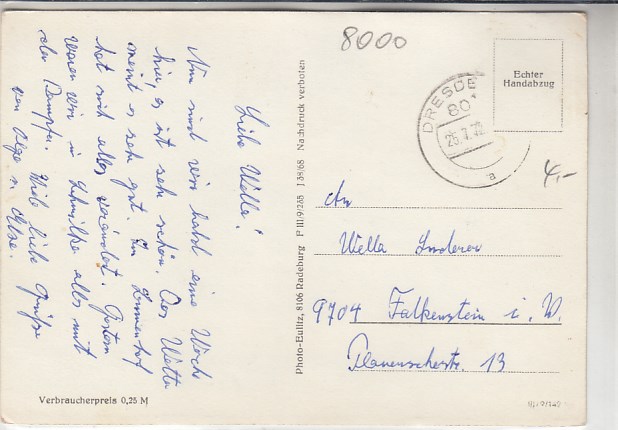 8000
Liebe Wella!
Nun sind wir bald eine Woche
hier, es ist sehr schön. Das Wetter
meint es sehr gut. In
hat sich alles verändert. Gestern
waren wir in Schmilka alles mit
den Dampfer. Viele liebe Grüße
von Olga u.
Verbraucherpreis 0,25 M
Photo-Eulitz, 8106 Radeburg P III/9/285 J 38/68 Nachdruck verboten
DRESDEN
80
a
Echter
Handabzug
4,-
An
Wella
9704 Falkenstein i. V.
Plauenschestr. 13